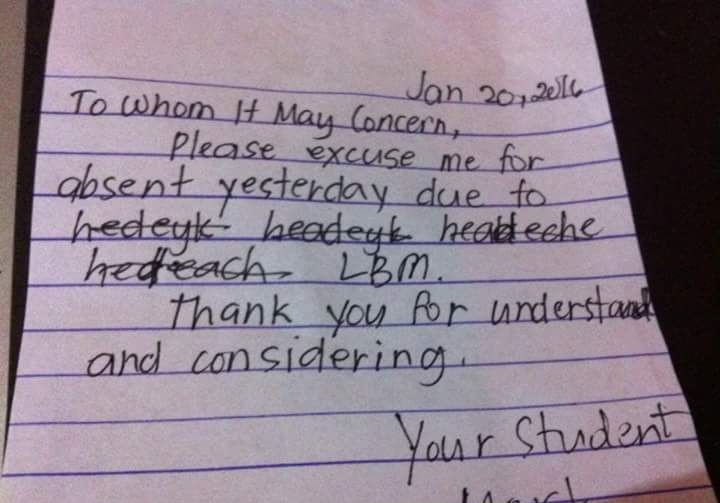 Jan 20, 2016
To Whom It May Concern,
Please excuse me for
absent yesterday due to
hedeyk headeyk headeche
hedeach LBM.
Thank you for understand
and considering.
Your Student